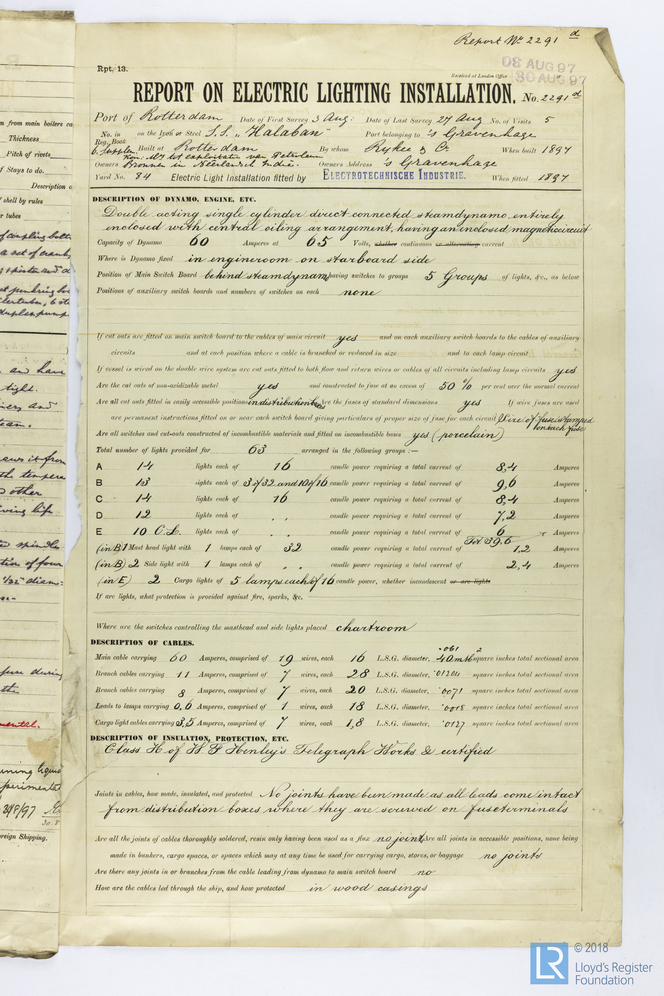 Report No 2291 d
08 AUG 97
30 AUG 97
Rpt. 13.
Received at London Office
REPORT ON ELECTRIC LIGHTING INSTALLATION. No. 2291 d
Port of Rotterdam Date of First Survey 3 Aug: Date of Last Survey 27 Aug No. of Visits 5
No. in Reg. Book on the Iron or Steel S.S. "Halaban" Port belonging to 's Gravenhage
Built at Rotterdam By whom Rykee & Co. When built 1897
Owners Owners Address 's Gravenhage
Yard No. 84 Electric Light Installation fitted by ELECTROTECHNISCHE INDUSTRIE. When fitted 1897
DESCRIPTION OF DYNAMO, ENGINE, ETC.
Double acting single cylinder direct connected steamdynamo, entirely
enclosed with central oiling arrangement, having an enclosed magneticcircuit
Capacity of Dynamo 60 Amperes at 65 Volts, whether continuous or alternating current
Where is Dynamo fixed in engineroom on starboard side
Position of Main Switch Board behind steamdynamo having switches to groups 5 Groups of lights, &c., as below
Positions of auxiliary switch boards and numbers of switches on each none
If cut outs are fitted on main switch board to the cables of main circuit yes and on each auxiliary switch boards to the cables of auxiliary
circuits and at each position where a cable is branched or reduced in size and to each lamp circuit
If vessel is wired on the double wire system are cut outs fitted to both flow and return wires or cables of all circuits including lamp circuits yes
Are the cut outs of non-oxidizable metal yes and constructed to fuse at an excess of 50 % per cent over the normal current
Are all cut outs fitted in easily accessible positions in distributionboxes Are the fuses of standard dimensions yes If wire fuses are used
are permanent instructions fitted on or near each switch board giving particulars of proper size of fuse for each circuit Size of fuse stamped on each fuse
Are all switches and cut-outs constructed of incombustible materials and fitted on incombustible bases yes (porcelain)
Total number of lights provided for 63 arranged in the following groups :—
A 14 lights each of 16 candle power requiring a total current of 8,4 Amperes
B 13 lights each of 3 of 32 and 10 of 16 candle power requiring a total current of 9,6 Amperes
C 14 lights each of 16 candle power requiring a total current of 8,4 Amperes
D 12 lights each of " candle power requiring a total current of 7,2 Amperes
E 10 C.L. lights each of " candle power requiring a total current of 6 Amperes
Tot 39.6
(in B) 1 Mast head light with 1 lamps each of 32 candle power requiring a total current of 1,2 Amperes
(in B) 2 Side light with 1 lamps each of " candle power requiring a total current of 2,4 Amperes
(in E) 2 Cargo lights of 5 lamps each of 16 candle power, whether incandescent or arc lights
If arc lights, what protection is provided against fire, sparks, &c.
Where are the switches controlling the masthead and side lights placed chartroom
DESCRIPTION OF CABLES.
Main cable carrying 60 Amperes, comprised of 19 wires, each 16 L.S.G. diameter, .061 square inches total sectional area
Branch cables carrying 11 Amperes, comprised of 7 wires, each 28 L.S.G. diameter, square inches total sectional area
Branch cables carrying 8 Amperes, comprised of 7 wires, each 20 L.S.G. diameter, .0071 square inches total sectional area
Leads to lamps carrying 0,6 Amperes, comprised of 1 wires, each 18 L.S.G. diameter, .0018 square inches total sectional area
Cargo light cables carrying 3,5 Amperes, comprised of 7 wires, each 1,8 L.S.G. diameter, .0127 square inches total sectional area
DESCRIPTION OF INSULATION, PROTECTION, ETC.
Class H of W T Henley's Telegraph Works & certified
Joints in cables, how made, insulated, and protected No joints have been made as all leads come intact
from distribution boxes where they are scruwed on fuseterminals
Are all the joints of cables thoroughly soldered, resin only having been used as a flux no joints Are all joints in accessible positions, none being
made in bunkers, cargo spaces, or spaces which may at any time be used for carrying cargo, stores, or baggage no joints
Are there any joints in or branches from the cable leading from dynamo to main switch board no
How are the cables led through the ship, and how protected in wood casings
© 2018
LR
Lloyd's Register
Foundation